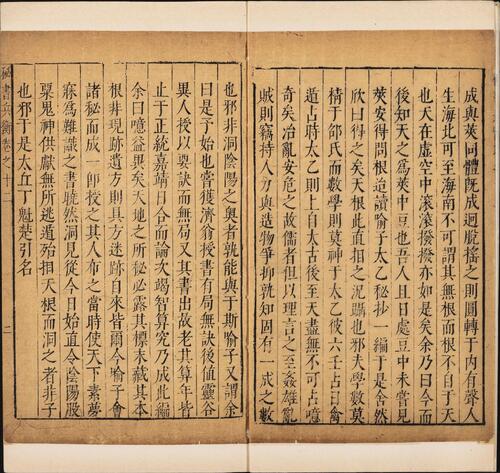 成與莢同體既成迥脫搖之則圓轉于內有聲人
生海北可至海南不可謂其無根而根不自于天
也天在虛空中滾滾撥撥亦如是矣余乃曰今而
後知天之爲莢中豆也吾人且日處豆中未嘗見
莢安得問根這讀喻子太乙秘抄一編于是舍然
欣曰得之矣天根此直相之況賜也邪夫學數莫
精于邵氏而數學則莫神于太乙彼六壬占日禽
遁占時太乙則上自太古後至天盡無不可占噫
奇矣冶亂安危之故儒者但以理言之至姦雄亂
賊則竊持人力與造物爭抑孰知固有一成之數
也邪非洞陰陽之奧者孰能與于斯喻子又謂余
曰是子始也嘗獲濟翁授書有局無訣後值靈谷
異人授以要訣而無局又其書出故老其算年皆
止于正統嘉靖日今而論次竭智算究乃成此編
余曰噫益異矣天地之所秘必露其標末藏其本
根非現跡遺方則具方迷跡自來皆爾今喻子會
諸秘而成一郎授之其人布之當時使天下素夢
寐爲難識之書曉然洞見從今日始直令陰陽股
栗鬼神供獻無所逃遁殆相天根而洞之者非子
也邪于是太丘丁魁楚引名
秘書兵衡卷之十二
二